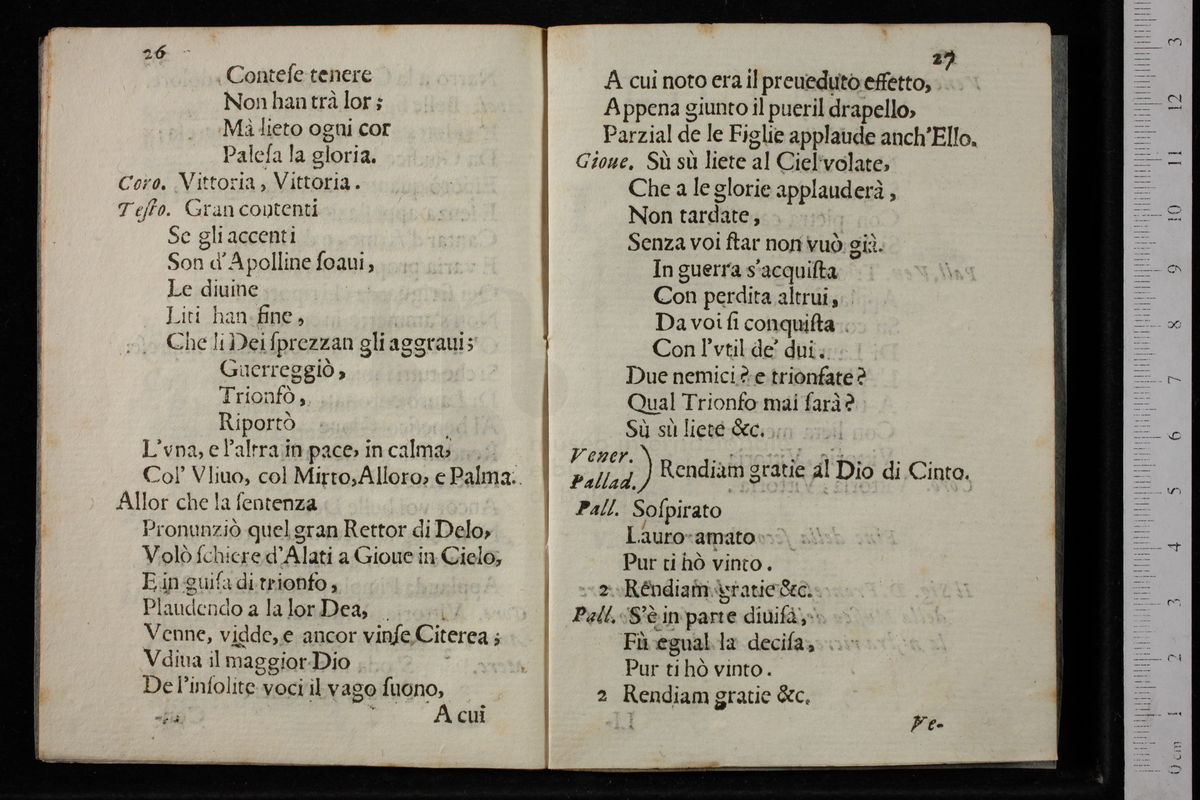 26
Conteſe tenere
Non han trà lor;
Mà lieto ogni cor
Paleſa la gloria.
Coro. Vittoria, Vittoria.
Teſto. Gran contenti
Se gli accenti
Son d'Apolline ſoaui,
Le diuine
Liti han fine,
Che li Dei ſprezzan gli aggraui;
Guerreggiò,
Trionfò,
Riportò
L'vna, e l'altra in pace, in calma,
Col' Vliuo, col Mirto, Alloro, e Palma.
Allor che la ſentenza
Pronunziò quel gran Rettor di Delo,
Volò ſchiere d'Alati a Gioue in Cielo,
E in guiſa di trionfo,
Plaudendo a la lor Dea,
Venne, vidde, e ancor vinſe Citerea;
Vdiua il maggior Dio
De l'inſolite voci il vago ſuono,
A cui
27
A cui noto era il preueduto effetto,
Appena giunto il pueril drapello,
Parzial de le Figlie applaude anch'Ello.
Gioue. Sù sù liete al Ciel volate,
Che a le glorie applauderà,
Non tardate,
Senza voi ſtar non vuò già.
In guerra s'acquiſta
Con perdita altrui,
Da voi ſi conquiſta
Con l'vtil de' dui.
Due nemici? e trionfate?
Qual Trionfo mai ſarà?
Sù sù liete &c.
Vener.
Pallad.) Rendiam gratie al Dio di Cinto.
Pall. Soſpirato
Lauro amato
Pur ti hò vinto.
2 Rendiam gratie &c.
Pall. S'è in parte diuiſa,
Fù egual la deciſa,
Pur ti hò vinto.
2 Rendiam gratie &c.
Ve-
0 cm 1 2 3 4 5 6 7 8 9 10 11 12 3